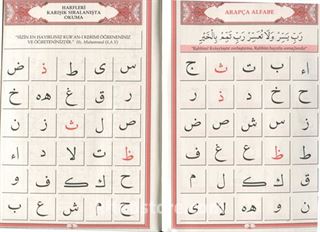 HARFLERİ
KARIŞIK SIRALANIŞTA
OKUMA
"SİZİN EN HAYIRLINIZ KUR'AN-I KERİMİ ÖĞRENENİNİZ
VE ÖĞRETENİNİZDİR." Hz. Muhammed (S.A.V)
س ى ط ذ ض
ر ق غ هه خ
ص ل ث ز ن
ظ ت لا د اء
ح ك ف و
ج م ش ع ب
ARAPÇA ALFABE
رَبِّ يَسِّرْ وَلَا تُعَسِّرْ رَبِّ تَمِّمْ بِالْخَيْرِ
"Rabbim! Kolaylaştır zorlaştırma, Rabbim hayırla sonuçlandır"
اء ب ت ث ج
ح خ د ذ ر
ز س ش ص ض
ط ظ ع غ ف
ق ك ل م
ن و هه لا ى